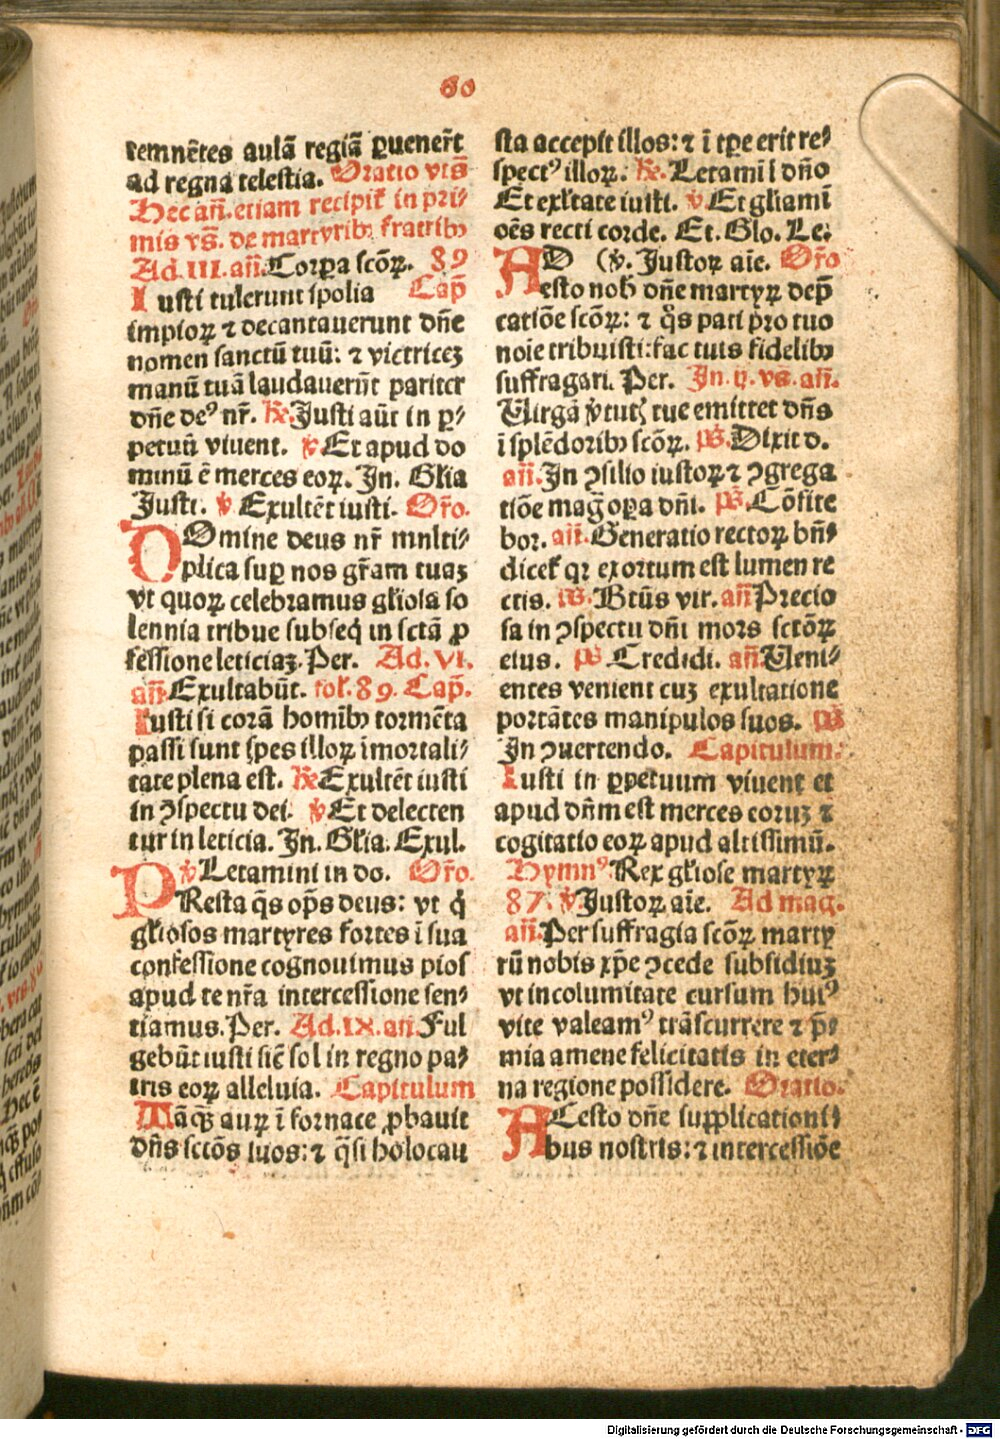 60
temnētes aulā regiā ꝑuenert̄
ad regna celestia. Oratio vts̄
Hec an̄. etiam recipit̄ in pri⸗
mis vs̄. de martyribꝫ fratribꝫ
Ad. III. an̄. Corpa scōꝝ. 89
Iusti tulerunt spolia Cap̄
impioꝝ ⁊ decantauerunt dn̄e
nomen sanctū tuū: ⁊ victricez
manū tuā laudauerūt pariter
dn̄e deꝰ nr̄. ℟. Justi aūt in ꝑ⸗
petuū viuent. ℣ Et apud do
minū ē merces eoꝝ. Jn. Gl̄ia
Justi. ℣ Exultēt iusti. Or̄o.
DOmine deus nr̄ mnlti⸗
plica suꝑ nos gr̄am tuaꝫ
vt quoꝝ celebramus gl̄iosa so
lennia tribue subseq̄ in sctā ꝓ
fessione leticiaꝫ. Per. Ad. VI.
an̄. Exultabūt. fol. 89. Cap̄.
Iusti si corā homībꝫ tormēta
passi sunt spes illoꝝ īmortali⸗
tate plena est. ℟ Exultēt iusti
in ꝯspectu dei. ℣ Et delecten
tur in leticia. Jn. Gl̄ia. Exul.
℣ Letamini in do. Or̄o.
PResta q̄s op̄s deus: vt q̄
gl̄iosos martyres fortes ī sua
confessione cognouimus pios
apud te nr̄a intercessione sen⸗
tiamus. Per. Ad. IX. an̄. Ful
gebūt iusti sic̄ sol in regno pa⸗
tris eoꝝ alleluia. Capitulum
Tāqȝ auꝝ ī fornace ꝓbauit
dn̄s sctōs suos: ⁊ q̄si holocau
sta accepit illos: ⁊ ī tꝑe erit re⸗
spectꝰ illoꝝ. ℟. Letamī ī dn̄o
Et exl̄tate iusti. ℣ Et gl̄iamī
oēs recti corde. Et. Glo. Le.
AD (℣. Justoꝝ aīe. Or̄o
esto nob̄ dn̄e martyꝝ dep̄
catiōe scōꝝ: ⁊ q̄s pati pro tuo
noīe tribuisti: fac tuis fidelibꝫ
suffragari. Per. Jn. ij. vs. an̄.
Virgā v̄tutꝭ tue emittet dn̄s
ī splēdoribꝫ scōꝝ. ps̄. Dixit d.
an̄. Jn ꝯsilio iustoꝝ ⁊ ꝯgrega
tiōe maḡ oꝑa dn̄i. ps̄. Cōfite
bor. an̄. Generatio rectoꝝ bn̄⸗
dicet̄ qꝛ exortum est lumen re
ctis. ps̄. Btūs vir. an̄ Precio
sa in ꝯspectu dn̄i mors sctōꝝ
eius. ps̄ Credidi. an̄. Ueni⸗
entes venient cuꝫ exultatione
portātes manipulos suos. ps̄
Jn ꝯuertendo. Capitulum.
Iusti in ꝑpetuum viuent et
apud dn̄m est merces eoruꝫ ⁊
cogitatio eoꝝ apud altissimū.
Hymnꝰ Rex gl̄iose martyꝝ
87. ℣ Justoꝝ aīe. Ad mag.
an̄. Per suffragia scōꝝ marty
rū nobis xp̄e ꝯcede subsidiuꝫ
vt incolumitate cursum huiꝰ
vite valeamꝰ trāscurrere ⁊ p̄⸗
mia amene felicitatis in eter⸗
na regione possidere. Oratio.
ADesto dn̄e supplicationi⸗
bus nostris: ⁊ intercessiōe
Digitalisierung gefördert durch die Deutsche Forschungsgemeinschaft - DFG